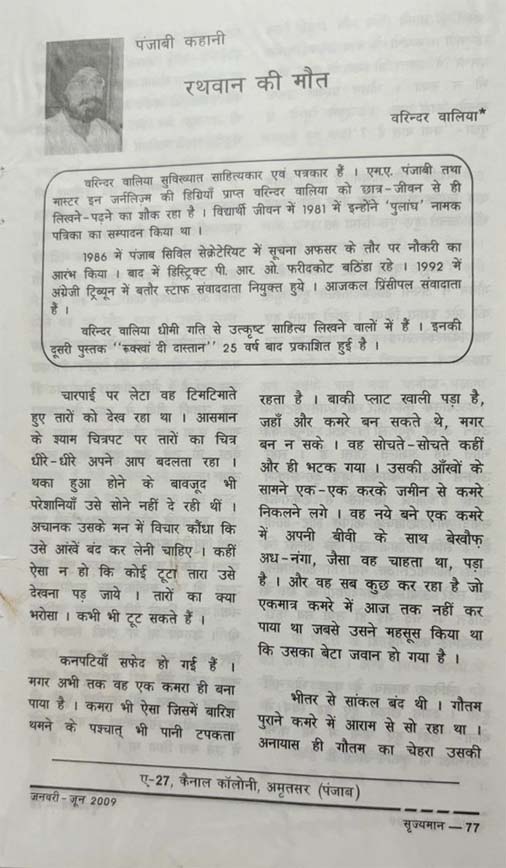 पंजाबी कहानी
रथवान की मौत
वरिन्दर वालिया*
वरिन्दर वालिया सुविख्यात साहित्यकार एवं पत्रकार हैं । एम.ए. पंजाबी तथा
मास्टर इन जर्नलिज़्म की डिग्रियाँ प्राप्त वरिन्दर वालिया को छात्र-जीवन से ही
लिखने-पढ़ने का शौक रहा है । विद्यार्थी जीवन में 1981 में इन्होंने 'पुलांघ' नामक
पत्रिका का सम्पादन किया था ।
1986 में पंजाब सिविल सेक्रेटेरियट में सूचना अफसर के तौर पर नौकरी का
आरंभ किया । बाद में डिस्ट्रिक्ट पी. आर. ओ. फरीदकोट बठिंडा रहे । 1992 में
अंग्रेजी ट्रिब्यून में बतौर स्टाफ संवाददाता नियुक्त हुये । आजकल प्रिंसीपल संवादाता
हैं ।
वरिन्दर वालिया धीमी गति से उत्कृष्ट साहित्य लिखने वालों में हैं । इनकी
दूसरी पुस्तक "रूक्खां दी दास्तान" 25 वर्ष बाद प्रकाशित हुई है ।
चारपाई पर लेटा वह टिमटिमाते
हुए तारों को देख रहा था । आसमान
के श्याम चित्रपट पर तारों का चित्र
धीरे-धीरे अपने आप बदलता रहा ।
थका हुआ होने के बावजूद भी
परेशानियाँ उसे सोने नहीं दे रही थीं ।
अचानक उसके मन में विचार कौंधा कि
उसे आंखें बंद कर लेनी चाहिए । कहीं
ऐसा न हो कि कोई टूटा तारा उसे
देखना पड़ जाये । तारों का क्या
भरोसा । कभी भी टूट सकते हैं ।
कनपटियाँ सफेद हो गई हैं ।
मगर अभी तक वह एक कमरा ही बना
पाया है । कमरा भी ऐसा जिसमें बारिश
थमने के पश्चात् भी पानी टपकता
रहता है । बाकी प्लाट खाली पड़ा है,
जहाँ और कमरे बन सकते थे, मगर
बन न सके । वह सोचते-सोचते कहीं
और ही भटक गया । उसकी आँखों के
सामने एक-एक करके जमीन से कमरे
निकलने लगे । वह नये बने एक कमरे
में अपनी बीवी के साथ बेखौफ़
अध-नंगा, जैसा वह चाहता था, पड़ा
है । और वह सब कुछ कर रहा है जो
एकमात्र कमरे में आज तक नहीं कर
पाया था जबसे उसने महसूस किया था
कि उसका बेटा जवान हो गया है ।
भीतर से सांकल बंद थी । गौतम
पुराने कमरे में आराम से सो रहा था ।
अनायास ही गौतम का चेहरा उसकी
ए-27, कैनाल कॉलोनी, अमृतसर (पंजाब)
जनवरी-जून 2009
सृज्यमान — 77